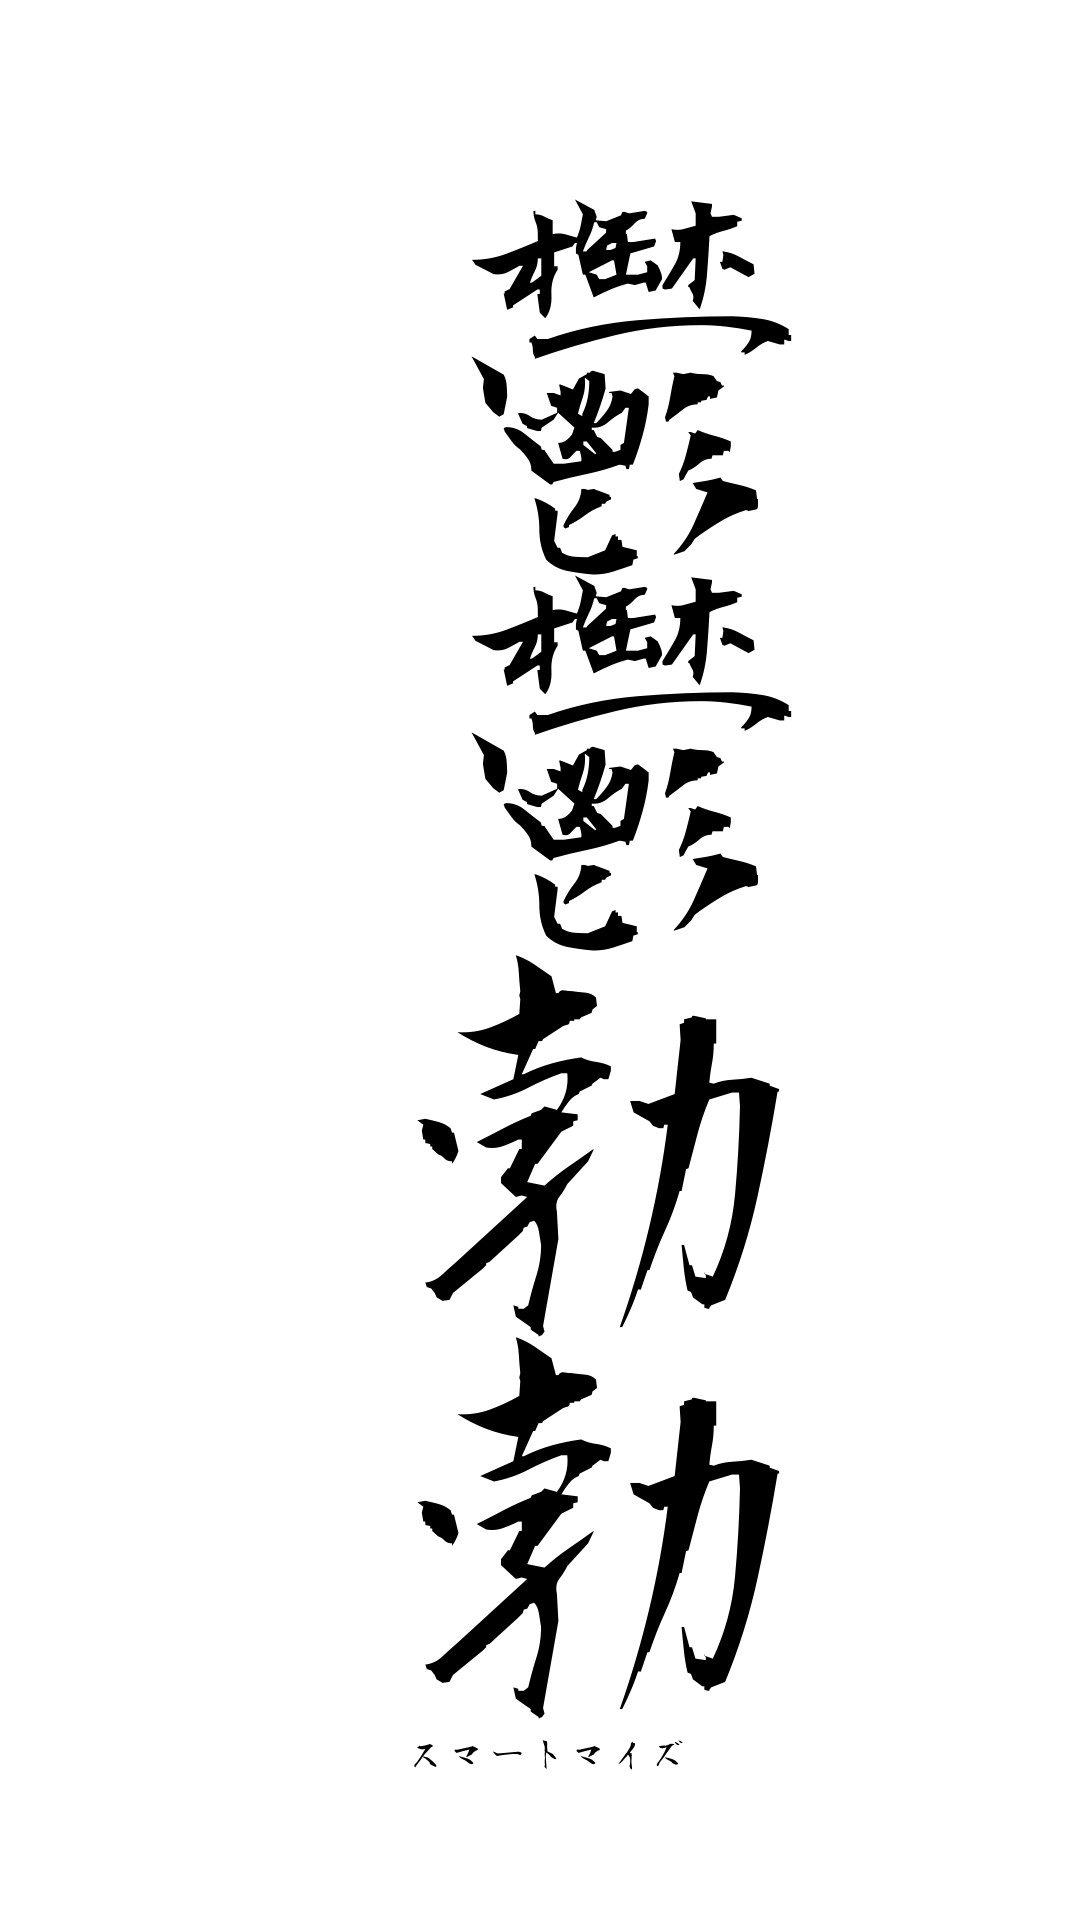 鬱鬱勃勃
スマートマイズ